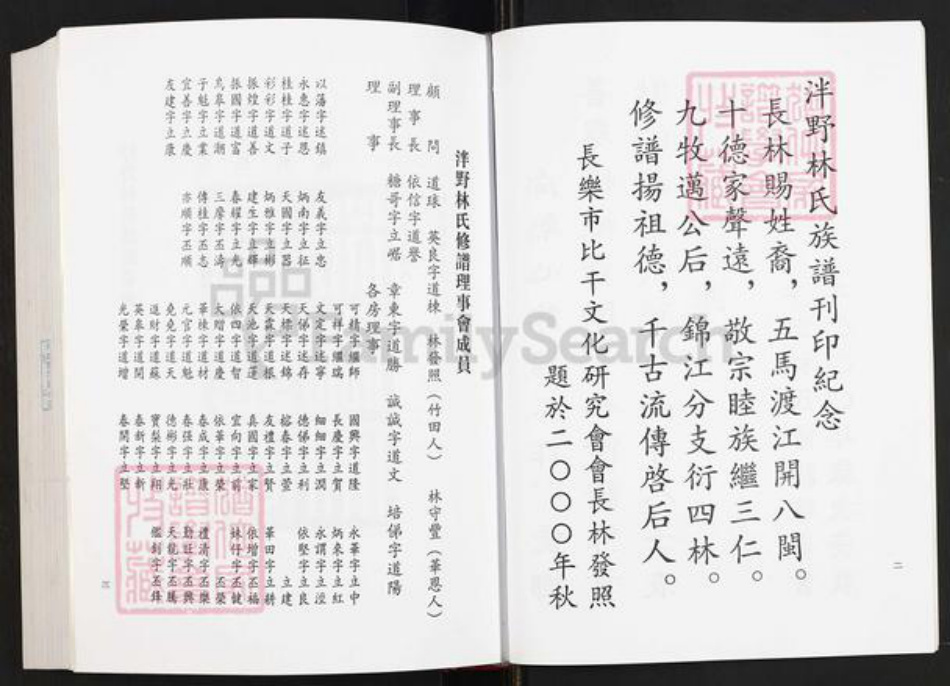 泮野林氏族譜刊印紀念
長林賜姓裔，五馬渡江開八閩。
十德家聲遠，敬宗睦族繼三仁。
九牧邁公后，錦江分支衍四林。
修譜揚祖德，千古流傳啓后人。
長樂市比干文化研究會會長林發照
題於二〇〇〇年秋
二
泮野林氏修譜理事會成員
顧問 道球 英良字道棟 林發照（竹田人） 林守豐（華恩人）
理事長 依信字道譽
副理事長 糖哥字立 章東字道勝 誠誠字道文 培俤字道陽
理事 各房理事
可精字繼師 國興字道隆 永華字立中
可祥字繼瑞 長慶字立賀 炳來字立紅
文定字述寧 細細字立潤 永謂字立
以藩字述鎮 友義字立忠 天俤字述存 德俤字立利 依堅字立良
永惠字述恩 炳南字立征 天標字述錦 榕春字立萱 立建
桂桂字道子 天國字立器 天霖字道根 友禮字立賢 華田字立耕
彩彩字道文 炳惟字立彬 天池字道蓮 真國字立家 依增字丕福
振煌字道善 建生字立輝 依四字道智 宜向字立前 妹仔字丕健
振國字道富 春耀字立光 大贈字道慶 依華字立榮 丕榮
烏皋字道潮 三摩字丕濤 華棟字道材 春成字立康 禮清字丕樂
子魁字立業 傳桂字丕忠 元官字道魁 春强字立壯 勤征字丕興
宜善字立慶 亦順字丕順 堯堯字道天 德彬字立光 天龍字丕騰
友建字立康 進財字道蘇 寶梨字立翔 丕鋒
英皋字道開 春新字立新
光榮字道增 春開字立堅
FamilySearch